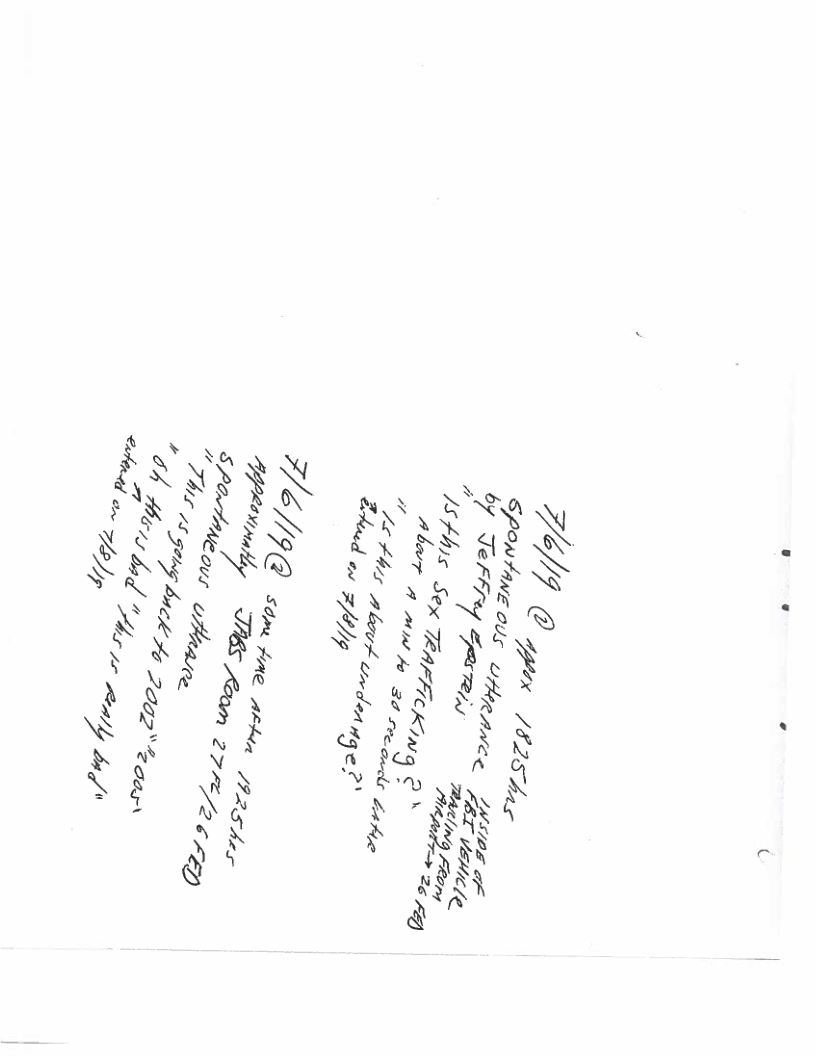 7/6/19 @ Appox 1825hrs
SPONTANEOUS UTTERANCE
by JEFFrey EPSTEIN
INSIDE OF
FBI VEHICLE
TRAVELING FROM
AIRPORT → 26 FED
"Is this Sex TRAFFICKING?"
About A min to 30 seconds
"Is this About underAge?"
↗
entered on 7/8/19
7/6/19 @ some time After 1925hrs
Approximatly Room 27 FL/26 FED
SPONTANEOUS UTTERANCE
"This is going back to 2002" "2005"
"Oh this is bad" "this is really bad"
↗
entered on 7/8/19